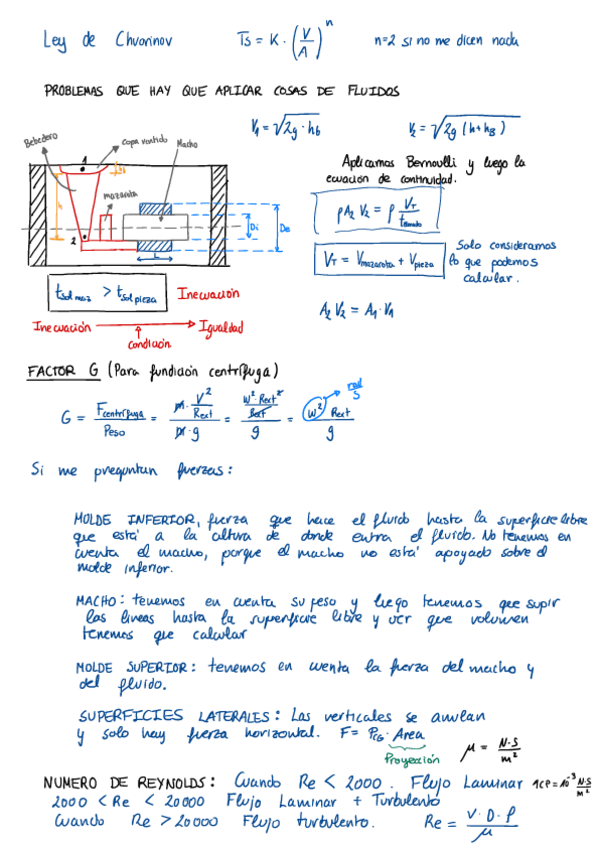 Ley de Chvorinov Ts = K · (V/A)^n n=2 si no me dicen nada
PROBLEMAS QUE HAY QUE APLICAR COSAS DE FLUIDOS
V₁ = √2g · hb V₂ = √2g (h + hB)
Bebedero
1
Copa vertido
Macho
mazarota
h
2
Di
De
L
Aplicamos Bernoulli y luego la
ecuación de continuidad.
ρ A₂ V₂ = ρ V_T / t_llenado
V_T = V_mazarota + V_pieza
Solo consideramos
lo que podemos
calcular.
A₂ V₂ = A₁ · V₁
t_sol maz > t_sol pieza Inecuación
Inecuación → Igualdad
Condición
FACTOR G (Para fundición centrífuga)
G = F_centrífuga / Peso = m · V²/R_ext / m · g = W² · R_ext² / R_ext / g = W² R_ext / g
rad/s
Si me preguntan fuerzas:
MOLDE INFERIOR, fuerza que hace el fluido hasta la superficie libre
que está a la altura de donde entra el fluido. No tenemos en
cuenta el macho, porque el macho no está apoyado sobre el
molde inferior.
MACHO: tenemos en cuenta su peso y luego tenemos que supir
las lineas hasta la superficie libre y ver que volumen
tenemos que calcular
MOLDE SUPERIOR: tenemos en cuenta la fuerza del macho y
del fluido.
SUPERFICIES LATERALES: Las verticales se anulan
y solo hay fuerza horizontal. F = P_CG · Area
Proyección
μ = N·S / m²
NUMERO DE REYNOLDS: Cuando Re < 2000. Flujo Laminar 1CP = 10⁻³ N·S/m²
2000 < Re < 20000 Flujo Laminar + Turbulento
Cuando Re > 20000 Flujo turbulento. Re = V · D · ρ / μ